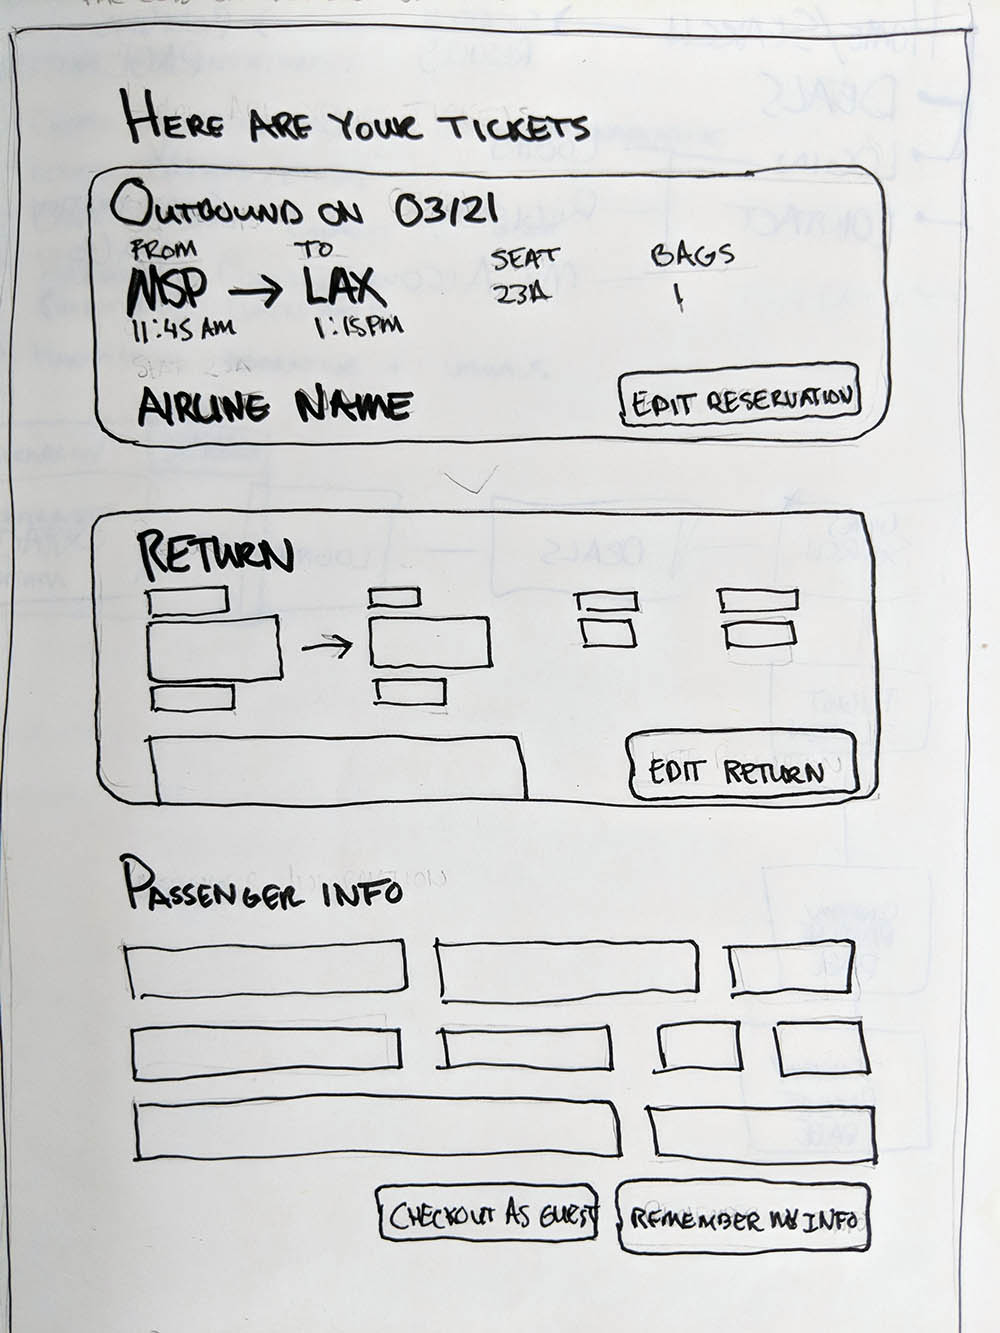 HERE ARE YOUR TICKETS
OUTBOUND ON 03/21
FROM TO SEAT BAGS
MSP → LAX 23A 1
11:45 AM 1:15 PM
AIRLINE NAME EDIT RESERVATION
RETURN
EDIT RETURN
PASSENGER INFO
CHECKOUT AS GUEST REMEMBER MY INFO